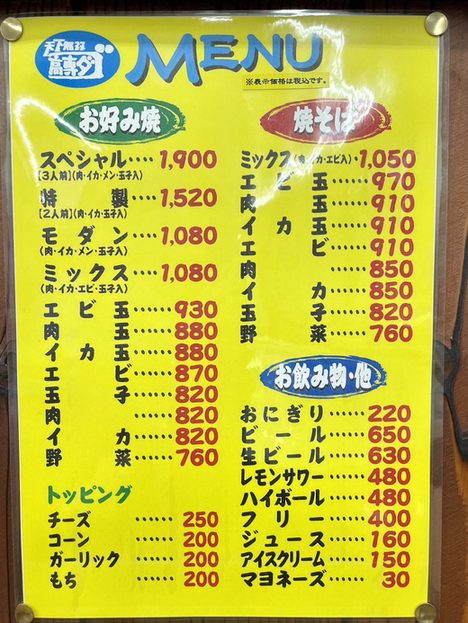 天下無双
高専ダゴ
MENU
※表示価格は税込です。
お好み焼
スペシャル････1,900
【3人前】(肉・イカ・メン・玉子入)
特製････1,520
【2人前】(肉・イカ・玉子入)
モダン････1,080
(肉・イカ・メン・玉子入)
ミックス････1,080
(肉・イカ・エビ・玉子入)
エビ玉････930
肉玉････880
イカ玉････880
エビ････870
玉子････820
肉････820
イカ････820
野菜････760
トッピング
チーズ ･･････ 250
コーン ･･････ 200
ガーリック ･･････ 200
もち ･･････ 200
焼そば
ミックス(肉・イカ・エビ入)･1,050
エビ玉･･････970
肉玉･･････910
イカ玉･･････910
エビ･･････910
肉･･････850
イカ･･････850
玉子･･････820
野菜･･････760
お飲み物・他
おにぎり･･････220
ビール･･････650
生ビール･･････630
レモンサワー････480
ハイボール････480
フリー･･････400
ジュース･････160
アイスクリーム････150
マヨネーズ････30